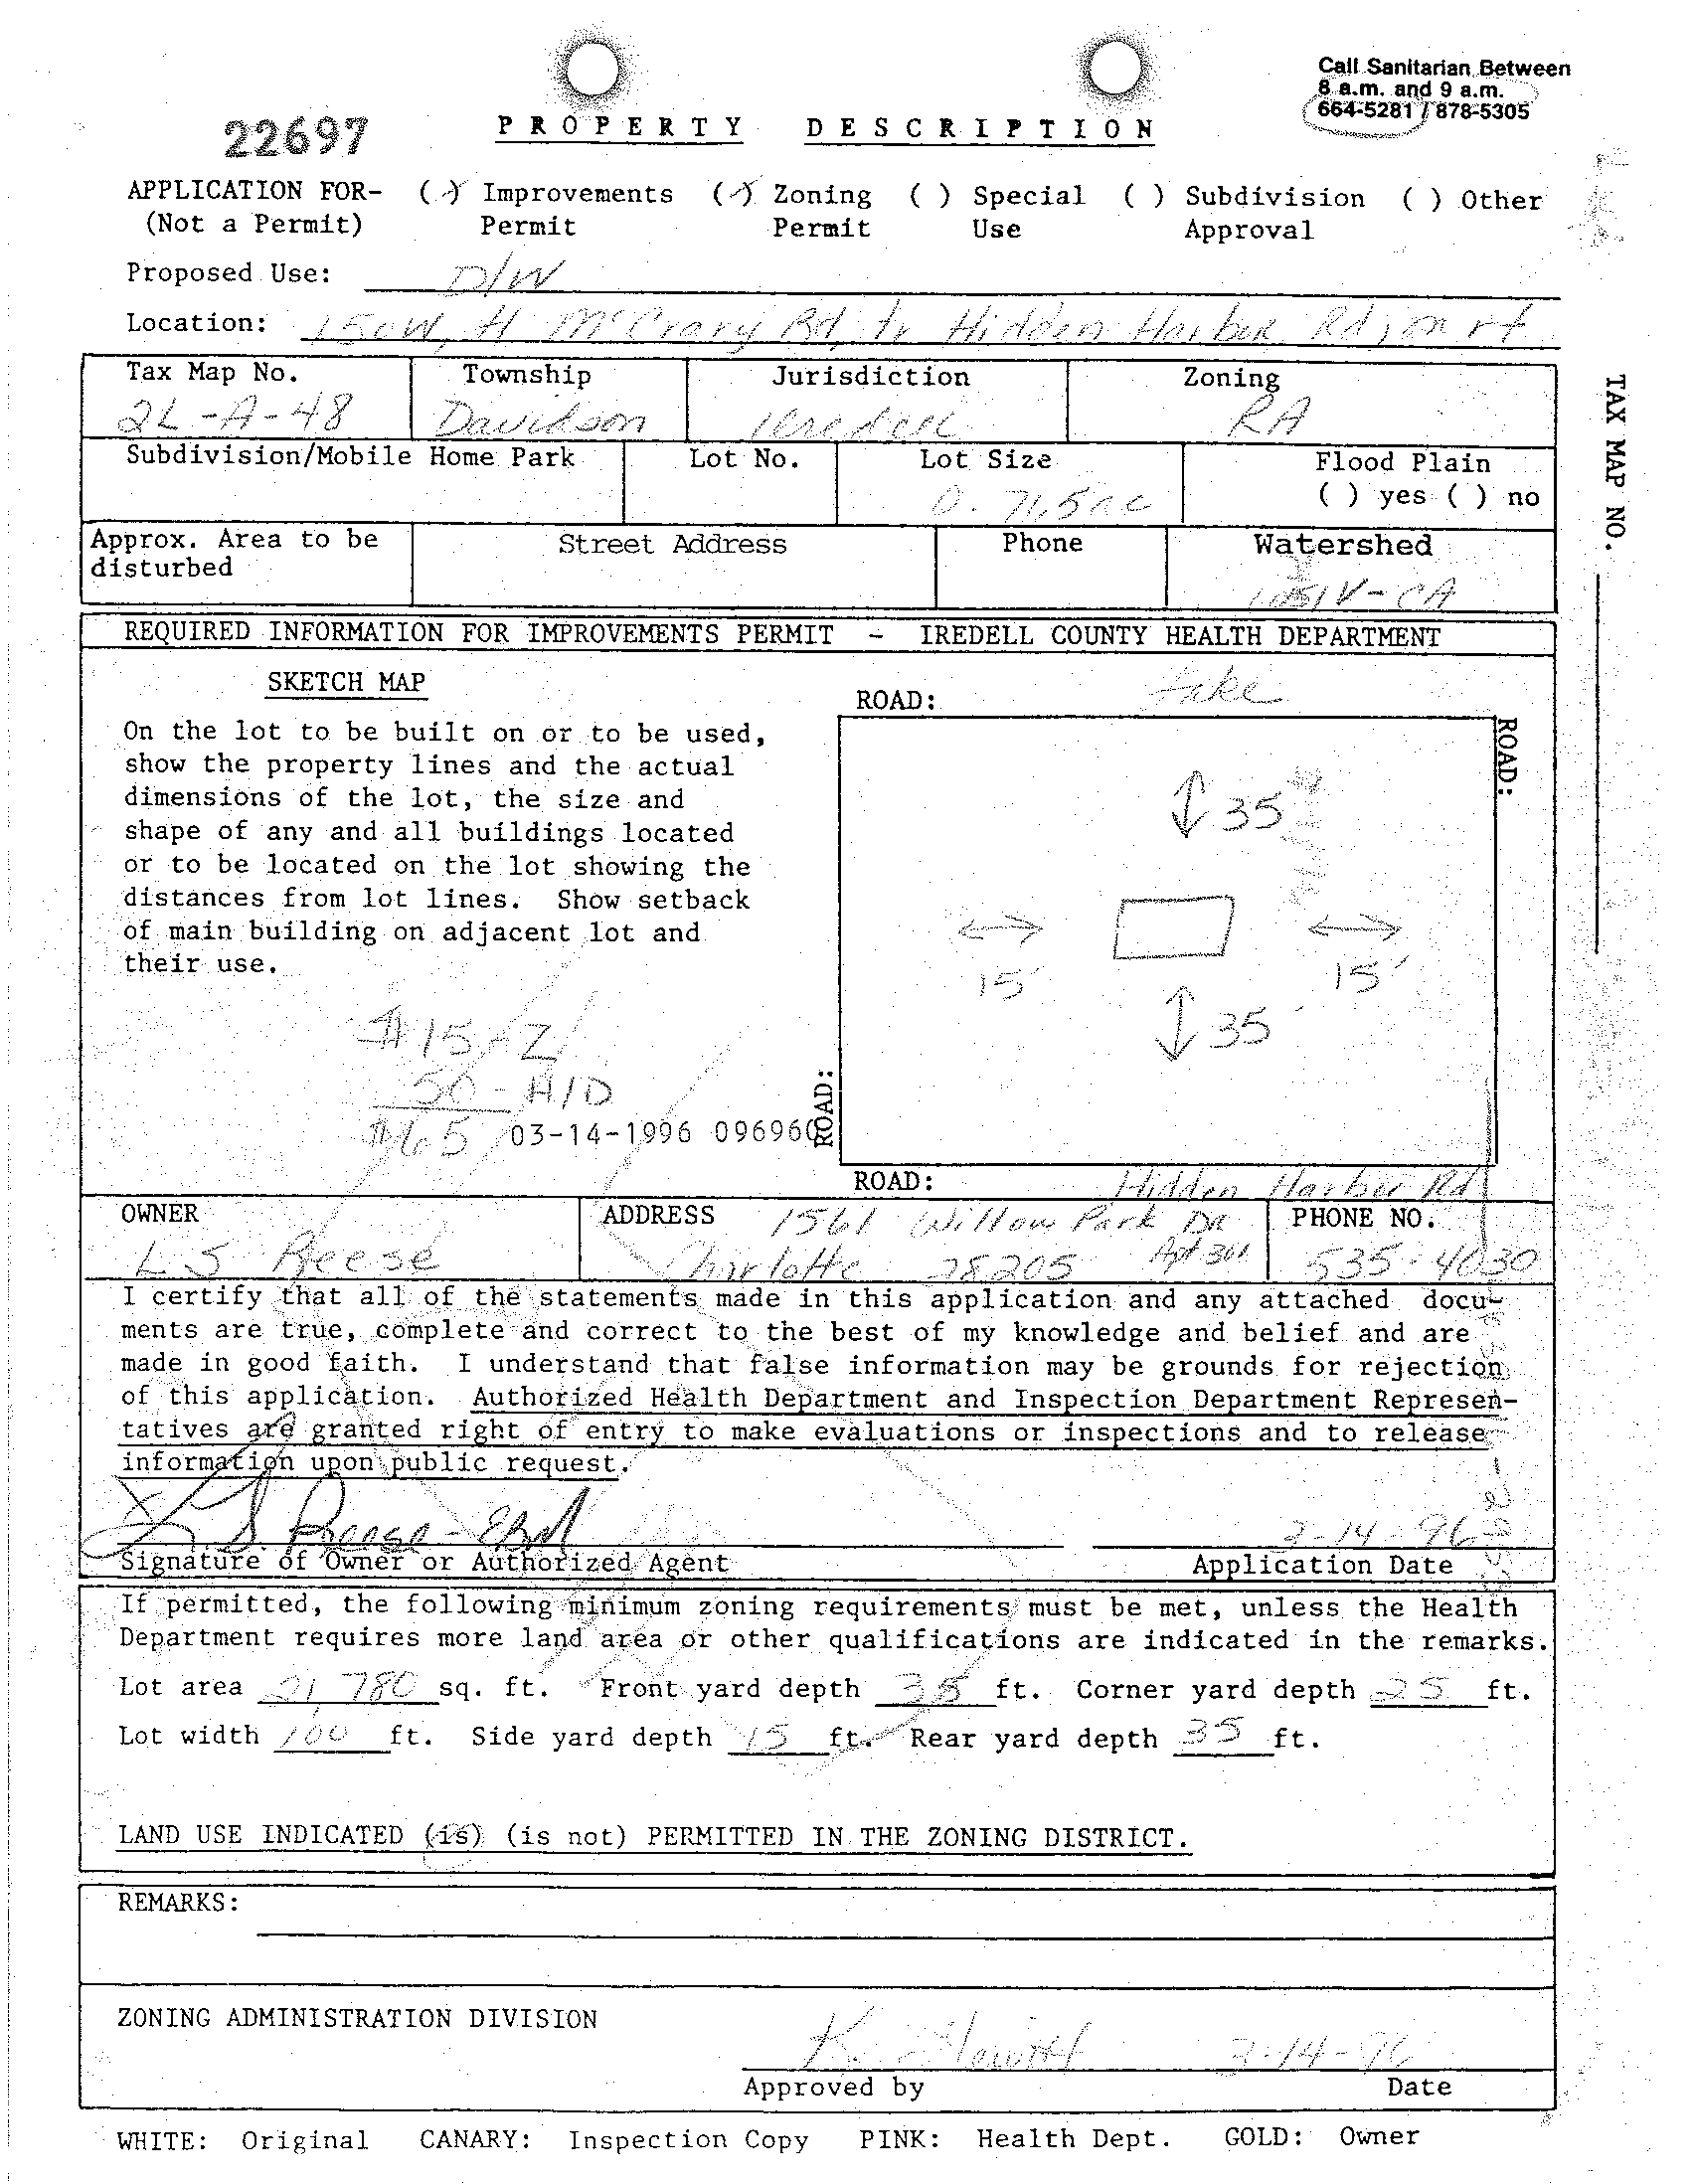 Call Sanitarian Between
8 a.m. and 9 a.m.
664-5281 / 878-5305
22697
PROPERTY DESCRIPTION
APPLICATION FOR- ( ) Improvements ( ) Zoning ( ) Special ( ) Subdivision ( ) Other
(Not a Permit) Permit Permit Use Approval
Proposed Use: D/W
Location: 150W, McCrary Rd, Hidden Harbor Rd, on rt
Tax Map No. Township Jurisdiction Zoning
2L-A-48 Davidson Iredell RA
Subdivision/Mobile Home Park Lot No. Lot Size Flood Plain
( ) yes ( ) no
Approx. Area to be Street Address Phone Watershed
disturbed
IV-CA
REQUIRED INFORMATION FOR IMPROVEMENTS PERMIT - IREDELL COUNTY HEALTH DEPARTMENT
SKETCH MAP
ROAD: Lake
On the lot to be built on or to be used,
show the property lines and the actual
dimensions of the lot, the size and
shape of any and all buildings located
or to be located on the lot showing the
distances from lot lines. Show setback
of main building on adjacent lot and
their use.
ROAD:
35
15' 15'
35
$15 - Z
50 - A/D
$65 03-14-1996 096960
ROAD:
ROAD: Hidden Harbor Rd
TAX MAP NO.
OWNER ADDRESS 1561 Willow Park Dr PHONE NO.
L S Reese Charlotte 28205 Apt 301 535-4030
I certify that all of the statements made in this application and any attached docu-
ments are true, complete and correct to the best of my knowledge and belief and are
made in good faith. I understand that false information may be grounds for rejection
of this application. Authorized Health Department and Inspection Department Represen-
tatives are granted right of entry to make evaluations or inspections and to release
information upon public request.
L S. Reese 3-14-96
Signature of Owner or Authorized Agent Application Date
If permitted, the following minimum zoning requirements must be met, unless the Health
Department requires more land area or other qualifications are indicated in the remarks.
Lot area 21 780 sq. ft. Front yard depth 35 ft. Corner yard depth 25 ft.
Lot width 100 ft. Side yard depth 15 ft. Rear yard depth 35 ft.
LAND USE INDICATED (is) (is not) PERMITTED IN THE ZONING DISTRICT.
REMARKS:
ZONING ADMINISTRATION DIVISION
K. 3-14-96
Approved by Date
WHITE: Original CANARY: Inspection Copy PINK: Health Dept. GOLD: Owner